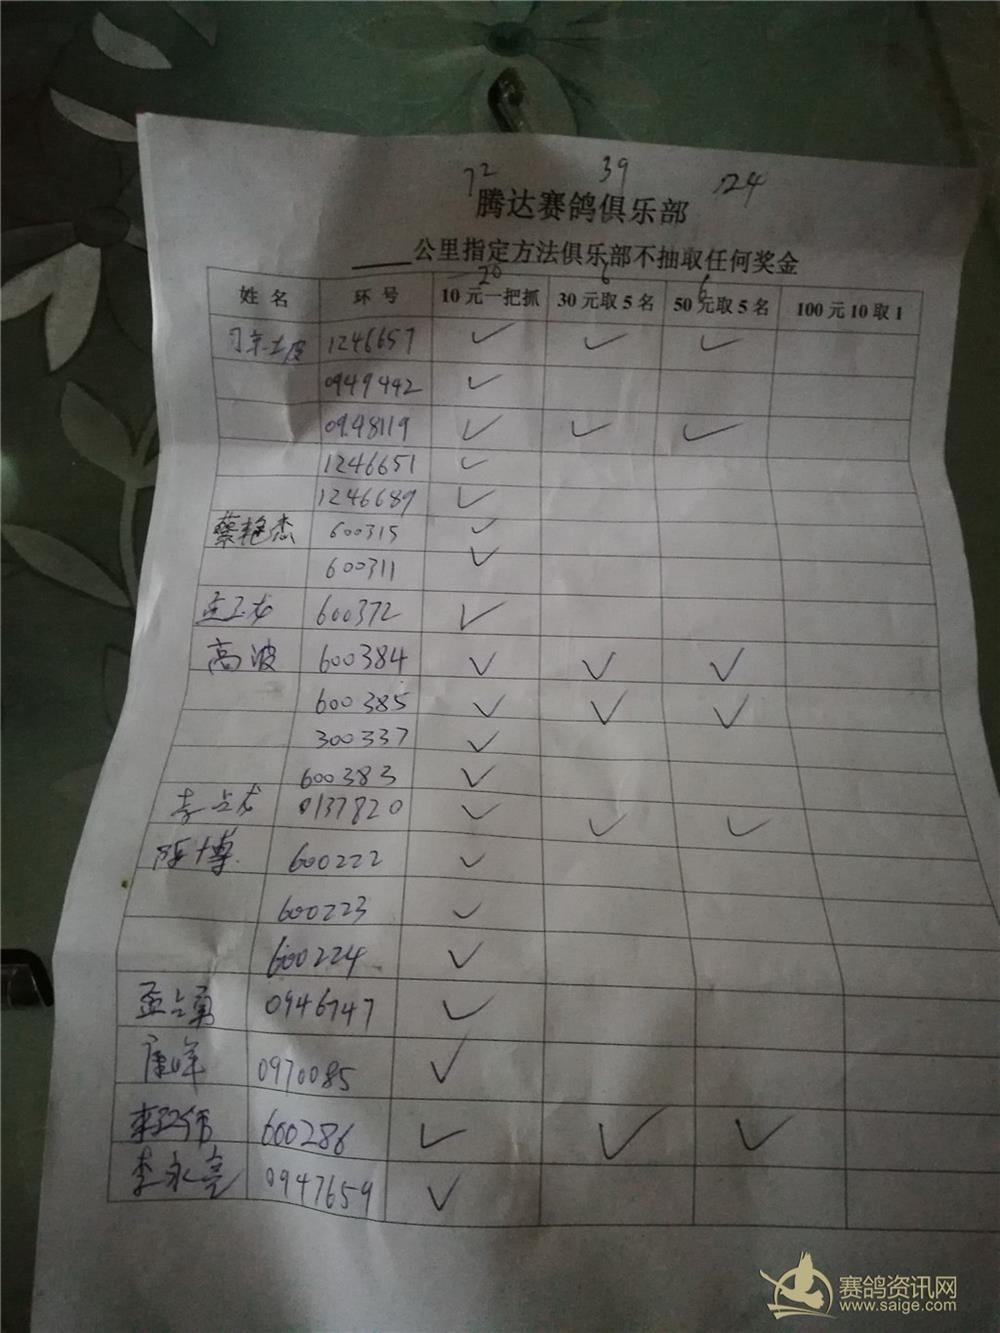 72 39 124
腾达赛鸽俱乐部
____公里指定方法俱乐部不抽取任何奖金
20 6 6
姓 名 环 号 10 元一把抓 30 元取 5 名 50 元取 5 名 100 元 10 取 1
1246657 ✓ ✓ ✓
0949442 ✓
0948119 ✓ ✓ ✓
1246651 ✓
1246689 ✓
蔡艳杰 600315 ✓
600311 ✓
600372 ✓
高波 600384 ✓ ✓ ✓
600385 ✓ ✓ ✓
300337 ✓
600383 ✓
李占龙 0137820 ✓ ✓ ✓
陈博 600222 ✓
600223 ✓
600224 ✓
孟占勇 0946747 ✓
唐峰 0970085 ✓
600286 ✓ ✓ ✓
李永亮 0947659 ✓
赛鸽资讯网
www.saige.com